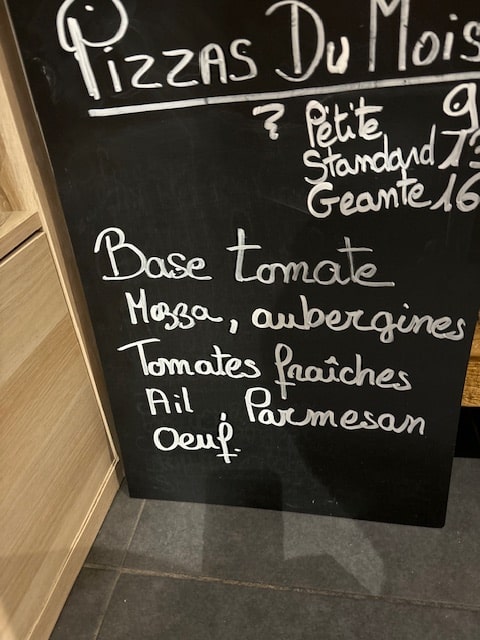 Pizzas Du Mois
? Petite 9
Standard 13
Geante 16
Base tomate
Mozza, aubergines
Tomates fraîches
Ail, Parmesan
Oeuf.